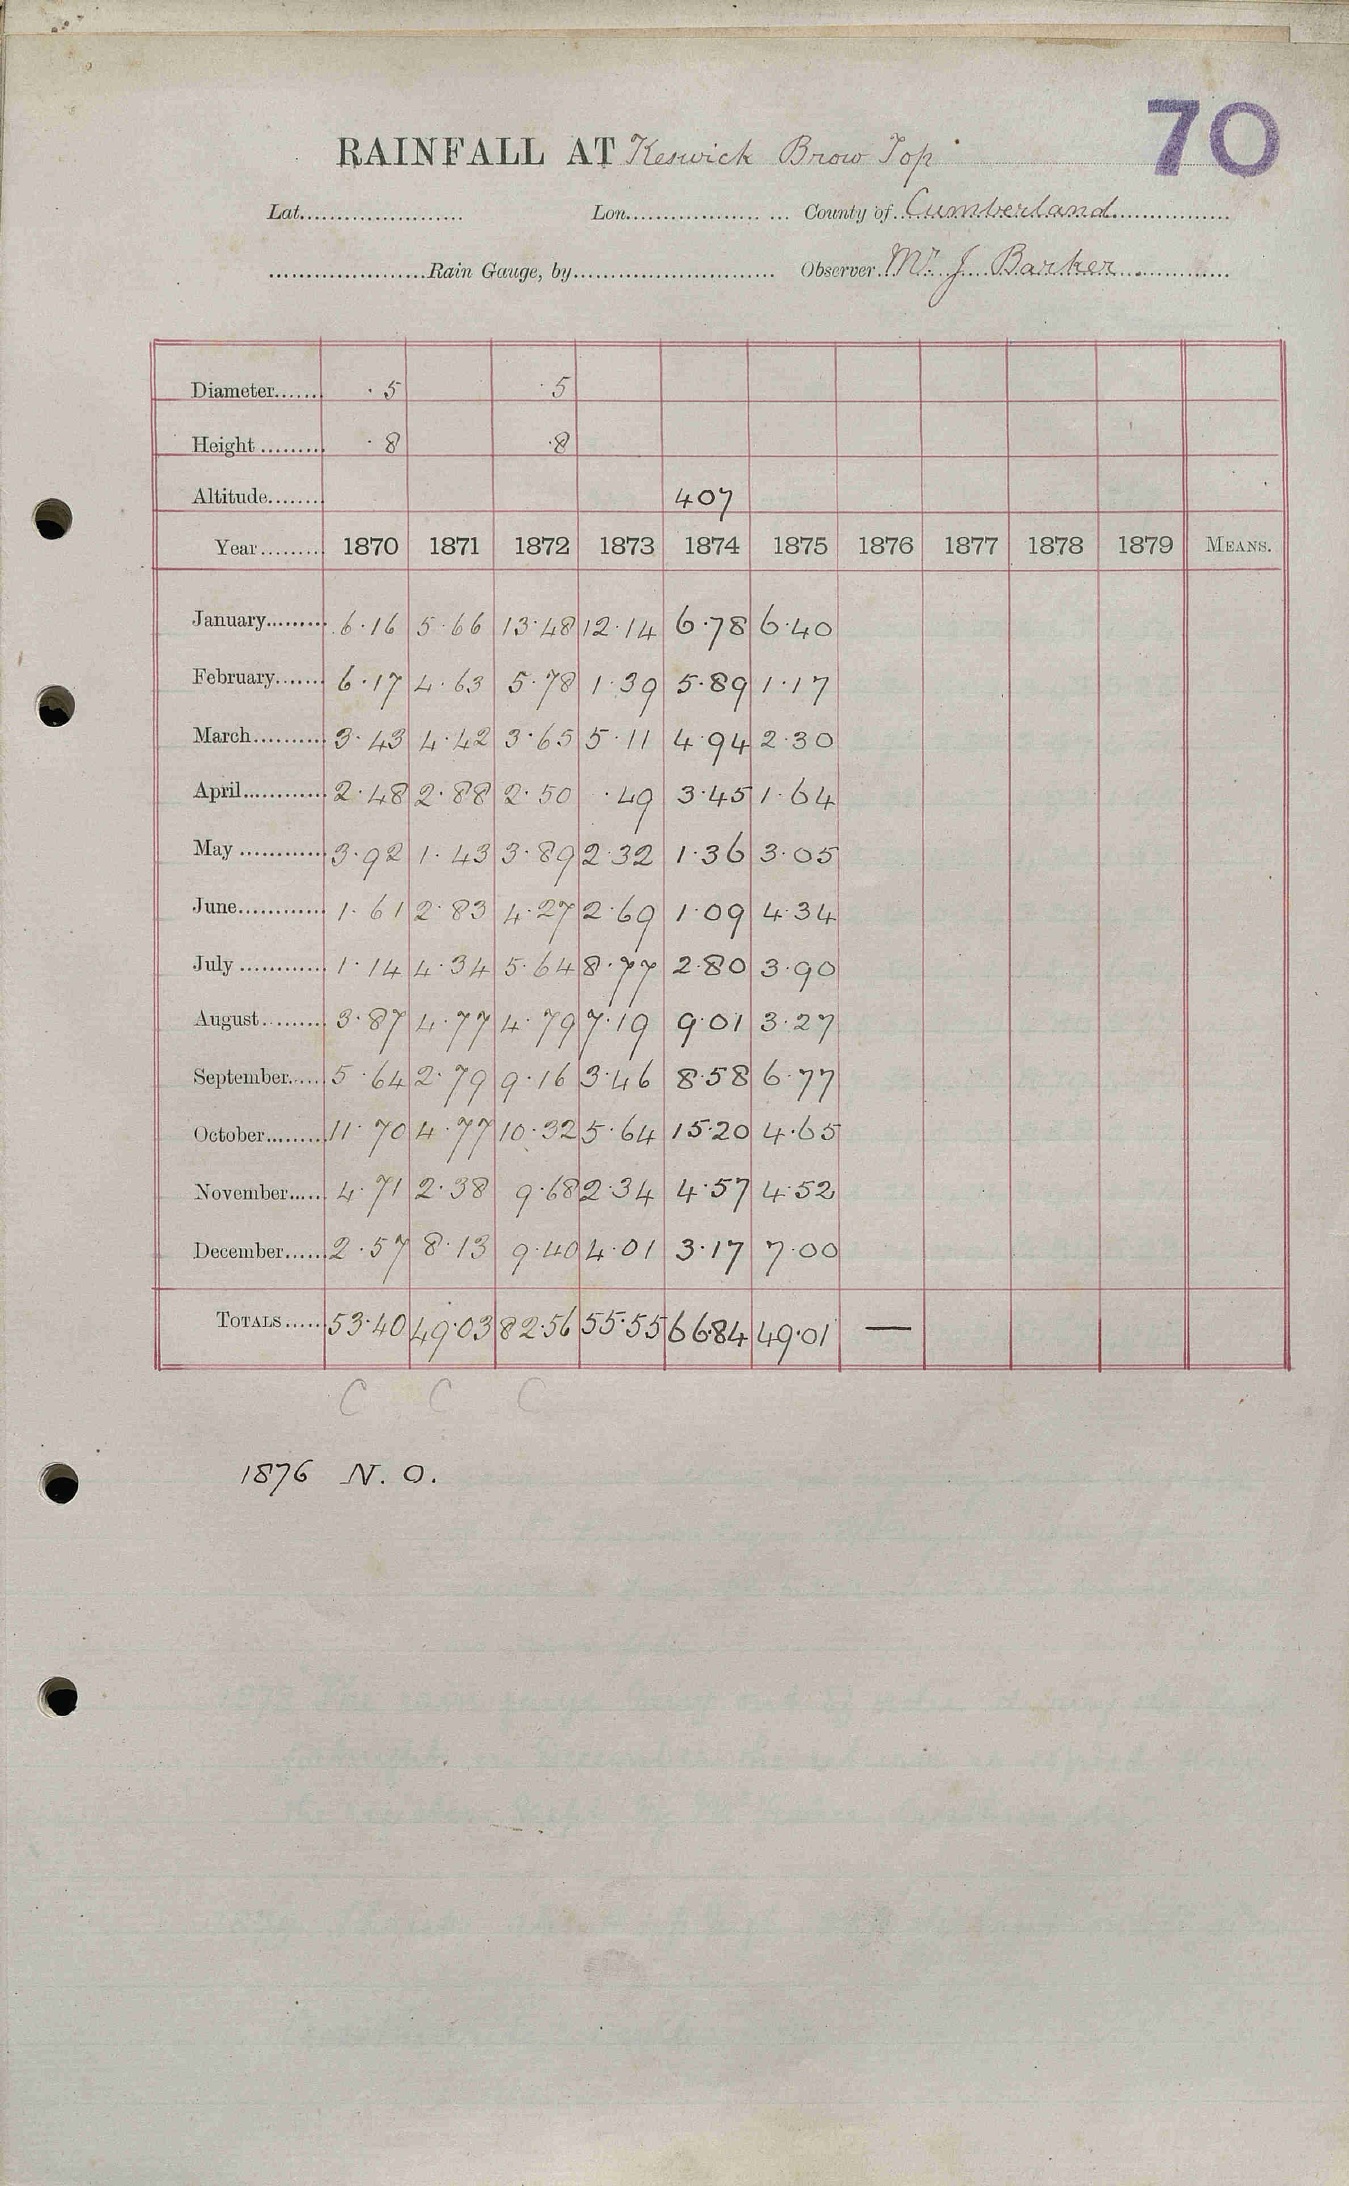 70
RAINFALL AT Keswick Brow Top
Lat...................... Lon.................. ... County of Cumberland
.....................Rain Gauge, by........................... Observer Mr. J Barker
Diameter....... ·5 ·5
Height ......... ·8 ·8
Altitude........ 407
Year......... 1870 1871 1872 1873 1874 1875 1876 1877 1878 1879 MEANS.
January......... 6·16 5·66 13·48 12·14 6·78 6·40
February....... 6·17 4·63 5·78 1·39 5·89 1·17
March.......... 3·43 4·42 3·65 5·11 4·94 2·30
April............ 2·48 2·88 2·50 ·49 3·45 1·64
May ............ 3·92 1·43 3·89 2·32 1·36 3·05
June............ 1·61 2·83 4·27 2·69 1·09 4·34
July ............ 1·14 4·34 5·64 8·77 2·80 3·90
August......... 3·87 4·77 4·79 7·19 9·01 3·27
September...... 5·64 2·79 9·16 3·46 8·58 6·77
October......... 11·70 4·77 10·32 5·64 15·20 4·65
November...... 4·71 2·38 9·68 2·34 4·57 4·52
December...... 2·57 8·13 9·40 4·01 3·17 7·00
TOTALS...... 53·40 49·03 82·56 55·55 66·84 49·01 —
C C C
1876 N. O.